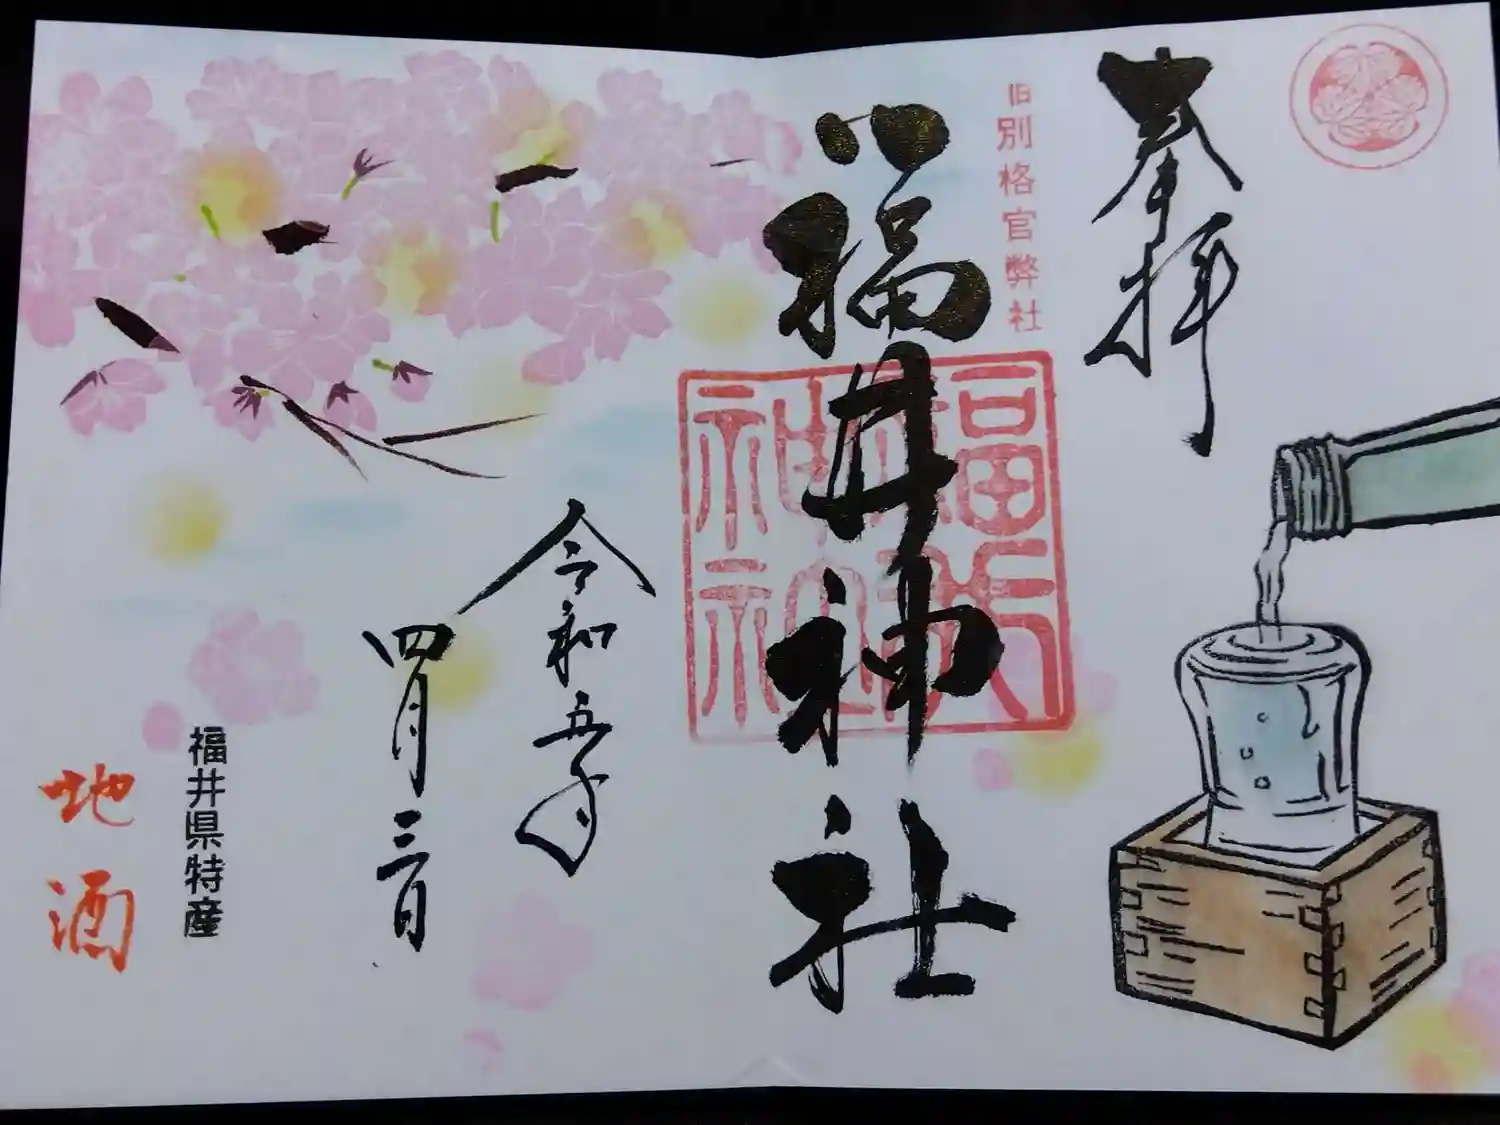 奉拝
旧別格官幣社
福井神社
福井神社
令和五年
四月三日
福井県特産
地酒